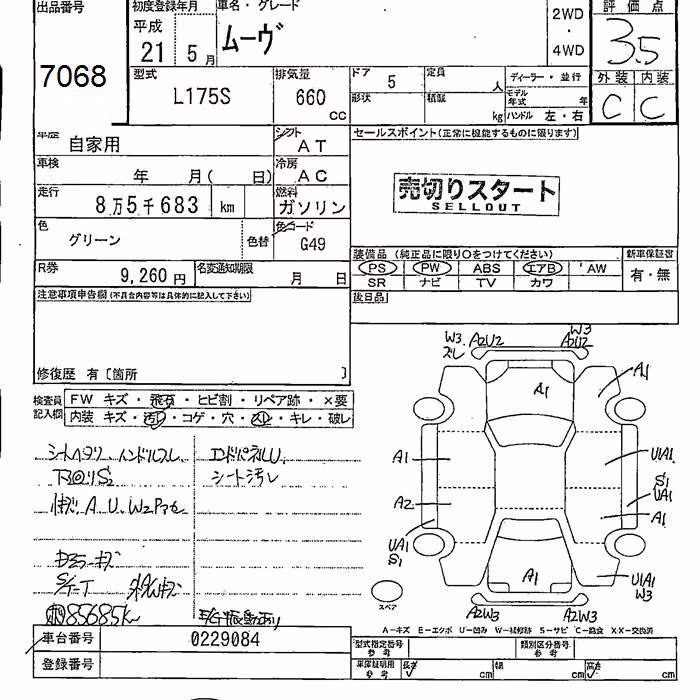 出品番号
7068
初度登録年月
平成
21 5 月
車名・グレード
ムーヴ
2WD
・
4WD
評価点
3.5
外装 内装
C C
型式
L175S
排気量
660
cc
ドア 5
定員 人
形状
積載 kg
ディーラー・並行
モデル年式 年
ハンドル 左・右
車歴 自家用
シフト AT
車検 年 月( 日)
冷房 AC
走行 8万5千683 km
燃料 ガソリン
色 グリーン
色替
色コード G49
R券 9,260円
名変通知期限 月 日
セールスポイント(正常に機能するものに限ります)
売切りスタート
SELLOUT
装備品 (純正品に限り○をつけてください)
PS PW ABS エアB AW
SR ナビ TV カワ
新車保証書
有・無
後日品
注意事項申告欄(不具合内容等は具体的に記入して下さい)
修復歴 有〔箇所 〕
検査員記入欄
FW キズ・飛石・ヒビ割・リペア跡・×要
内装 キズ・汚レ・コゲ・穴・スレ・キレ・破レ
シートヘタリ ハンドルスレ
エンドパネルU
下回りS2
シート汚レ
85685K
W3
ズレ
A2U2
W3
A2U2
A1
A1
A1
U1A1
S1
U1A1
A2
A1
U1A1
S1
A1
U1A1
W3
A2W3
A2W3
スペア
A-キズ E-エクボ U-凹み W-補修跡 S-サビ C-腐食 X・XX-交換済
車台番号 0229084
登録番号
型式指定番号 参考
類別区分番号 参考
車庫証明用 参考
長さ cm
幅 cm
高さ cm